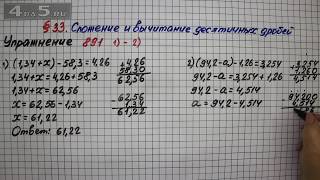 4on5.ru
§33. Сложение и вычитание десятичных дробей
Упражнение 891 1) - 2)
1) (1,34+x)-58,3=4,26
1,34+x=4,26+58,3
1,34+x=62,56
x=62,56-1,34
x=61,22
Ответ: 61,22
+4,26
58,30
62,56
-62,56
1,34
61,22
2) (94,2-a)-1,26=3,254
94,2-a=3,254+1,26
94,2-a=4,514
a=94,2-4,514
+3,254
1,260
4,514
94,200
4,514